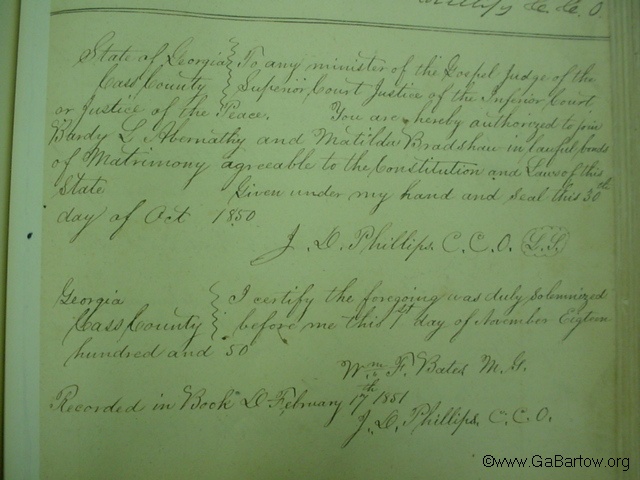 certify &c. C. C. O.
State of Georgia } To any minister of the Gospel Judge of the
Cass County } Superior Court Justice of the Inferior Court
or Justice of the Peace. You are hereby authorized to join
Bardy L Abernathy and Matilda Bradshaw in lawful bonds
of Matrimony agreeable to the Constitution and Laws of this
State Given under my hand and seal this 30th
day of Oct 1850
J. D. Phillips C. C. O. L.S.
Georgia } I certify the foregoing was duly Solemnized
Cass County } before me this 1st day of November Eigteen
hundred and 50
Wm. F. Bates M. G.
Recorded in Book D February 17th 1851
J. D. Phillips, C. C. O.
©www.GaBartow.org